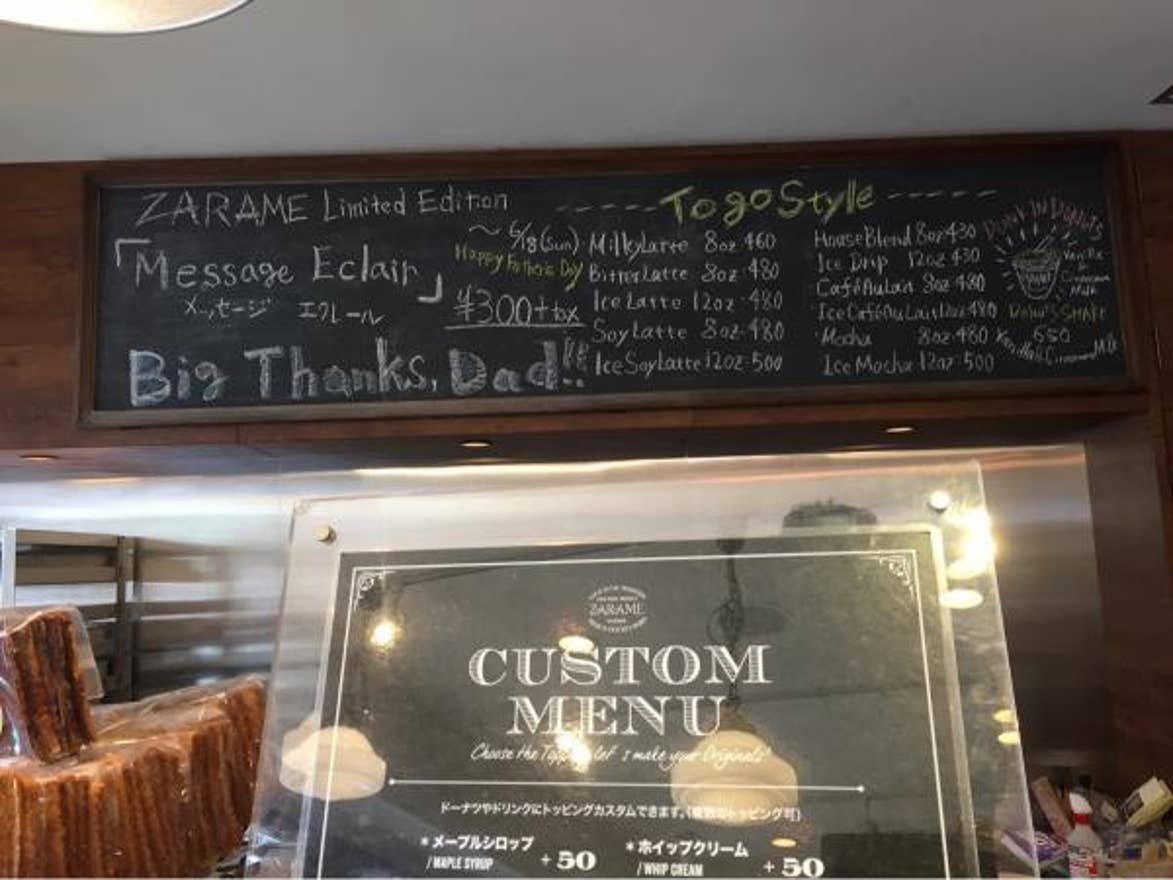 ZARAME Limited Edition
「Message Eclair」
メッセージ エクレール
~ 6/18(sun)
Happy Father's Day
¥300+tax
Big Thanks, Dad!!
To go Style
MilkyLatte 8oz 460
BitterLatte 8oz 480
Ice Latte 12oz 480
Soy Latte 8oz 480
Ice Soy Latte 12oz 500
House Blend 8oz 430
Ice Drip 12oz 430
Café Au Lait 8oz 480
Ice Café Au Lait 12oz 480
Mocha 8oz 480
Ice Mocha 12oz 500
Vanilla
&
Cinnamon
Milk
650
ZARAME
CUSTOM
MENU
Choose the Topping let's make your Originals!
ドーナツやドリンクにトッピングカスタムできます。(複数のトッピング可)
*メープルシロップ
/ MAPLE SYRUP +50
*ホイップクリーム
/ WHIP CREAM +50